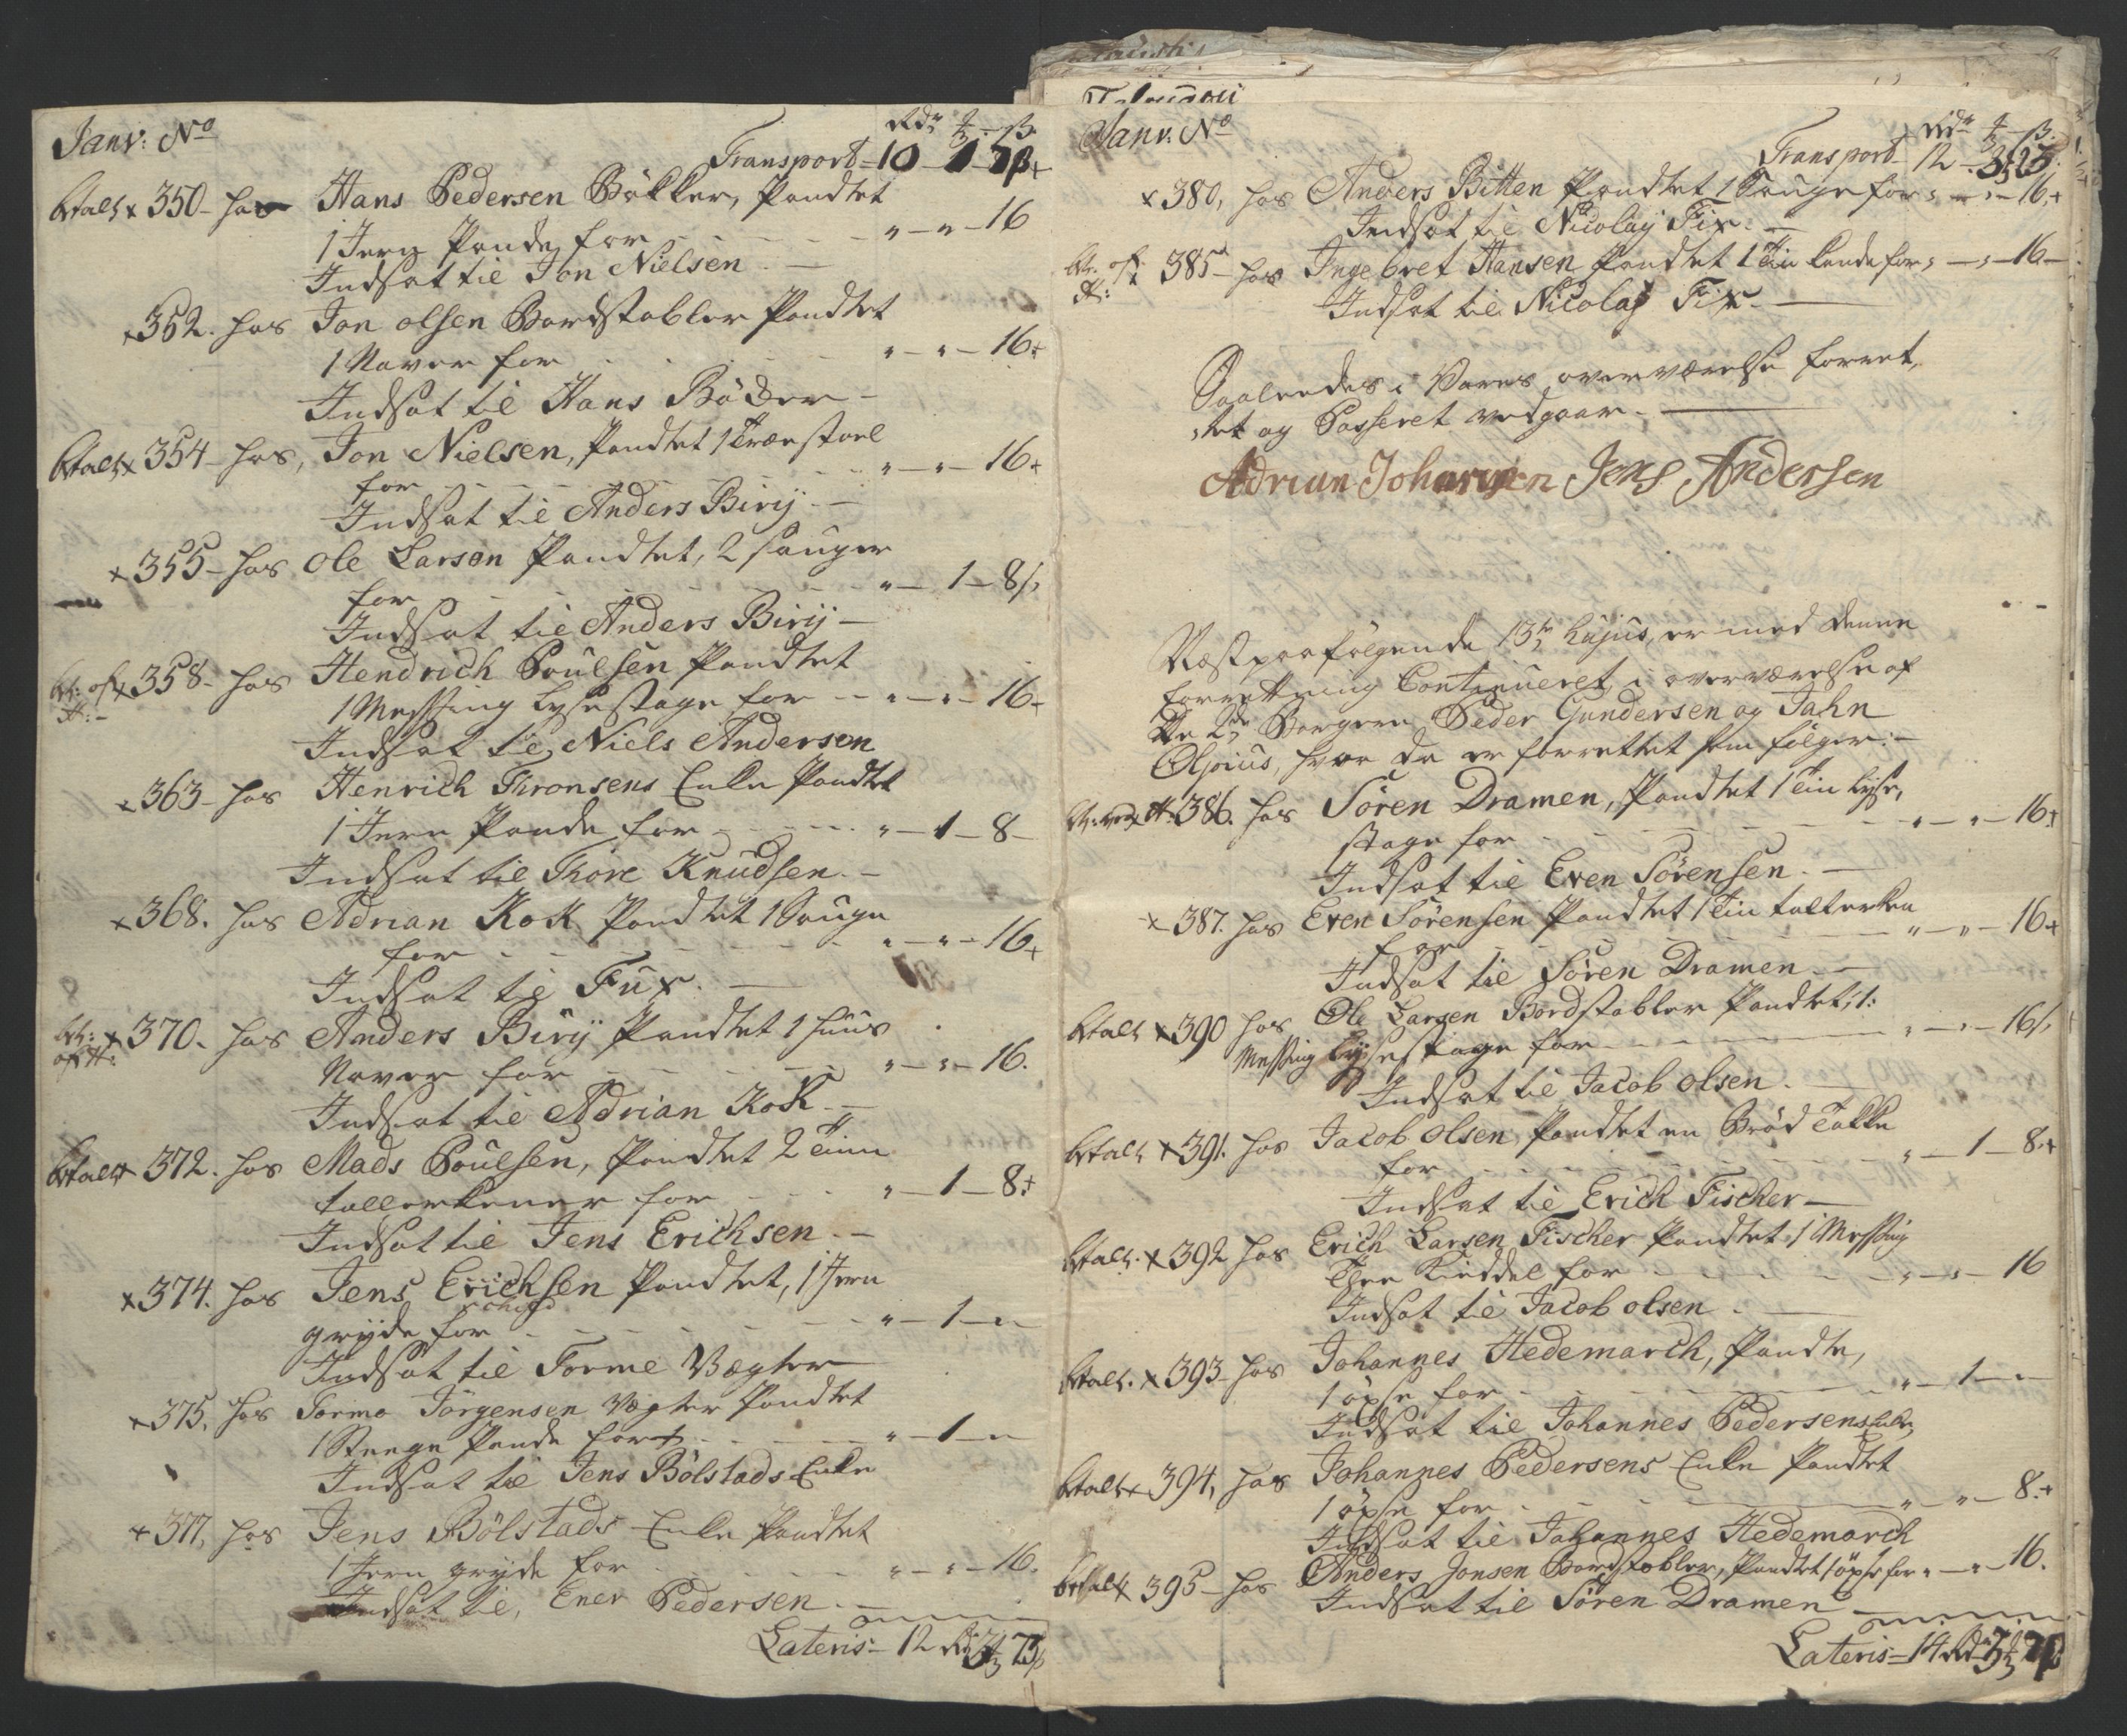 Janv: No
Rdr ƶ ß
Transport – 10 – 1 –
betalt x 350 – hos Hans Pedersen Bökker, Pandtet
1 Jern Pande for – „ – „ – 16
Indsat til Jon Nielsen –
x 352. hos Jon olsen Bordstabler Pandtet
1 Naver for – „ – „ – 16 +
Indsat til Hans Bödker –
betalt x 354 – hos, Jon Nielsen, Pandtet 1 Træe stoel
for – „ – „ – 16 +
Indsat til Anders Birij –
x 355 – hos Ole Larsen Pandtet, 2 sauger
for – „ – 1 – 8
Indsat til Anders Birij –
x 358 – hos Hendrich Poulsen Pandtet
1 Messing Lysestage for – „ – „ – 16
Indsat til Niels Andersen
x 363 – hos Henrich Thronsens Enke Pandtet
1 Jern Pande for – „ – 1 – 8 –
Indsat til Thore Knudsen. –
x 368. hos Adrian Kok Pandtet 1 Sauge
for – „ – „ – 16 +
Indsat til Fux. –
x 370. hos Anders Birij Pandtet 1 Huus
Naver for – „ – „ – 16.
Indsat til Adrian Kok. –
betalt x 372. hos Mads Poulsen, Pandtet 2 Tinn
tallerkener for – „ – 1 – 8 +
Indsat til Jens Erichsen. –
x 374. hos Jens Erichsen Pandtet, 1 Jern
gryde for – „ – 1 – „
Indsat til Torme Vægter
x 375. hos Tormo Jörgensen Vægter Pandtet
1 Steege Pande for – „ – 1 – „
Indsat til Jens Bölstads Enke
x 377, hos Jens Bölstads Enke Pandtet
1 Jern gryde for – „ – „ – 16.
Indsat til, Ener Pedersen –
Lateris – 12 Rdr
Janv: No
Rdr ƶ ß
Transport – 12 –
x 380, hos Anders Bitten Pandtet 1 Sauge for „ – „ – 16 +
Indsat til Nicolaij Fix. –
385 – hos Ingebret Hansen Pandtet 1 Tin kande for „ – „ – 16 –
Indsat til Nicolaij Fix. –
Saaledes i Vores overværelse forret,
tet og Passeret vedgaar. –
Adrian Johannsen Jens Andersen
Næstpaafölgende 13de hujus, er med denne
forretning Continueret i overværelse af
De 2de Borgere, Peder Gundersen og Jahn
hvor da er forrettet som fölger. –
386. hos Sören Dramen, Pandtet 1 Tin Lyse,
stage for – „ – „ – 16 +
Indsat til Even Sörensen. –
x 387. hos Even Sörensen Pandtet 1 Tin tallerken
for – „ – „ – 16 +
Indsat til Sören Dramen –
betalt x 390 hos Ole Larsen Bordstabler Pandtet, 1:
Messing Lysestage for – „ – „ – 16
Indsat til Jacob olsen. –
betalt x 391. hos Jacob olsen, Pandtet en Bröd Takke
for – „ – 1 – 8 +
Indsat til Erich Fischer –
betalt. x 392 hos Erich Larsen Fischer Pandtet 1 Messing
Thee Kieddel for – „ – „ – 16
Indsat til Jacob olsen. –
betalt. x 393 – hos Johannes Hedemarch, Pandte,
1 öxse for – „ – 1 – „
Indsat til Johannes Pedersens Enke
betalt x 394, hos Johannes Pedersens Enke Pandtet
1 öxse for – „ – „ – 8. +
Indsat til Johannes Hedemarch
betalt x 395 – hos Anders Jonsen Bordstabler, Pandtet 1 öxse for „ – „ – 16.
Indsat til Sören Dramen –
Lateris – 14 Rdr